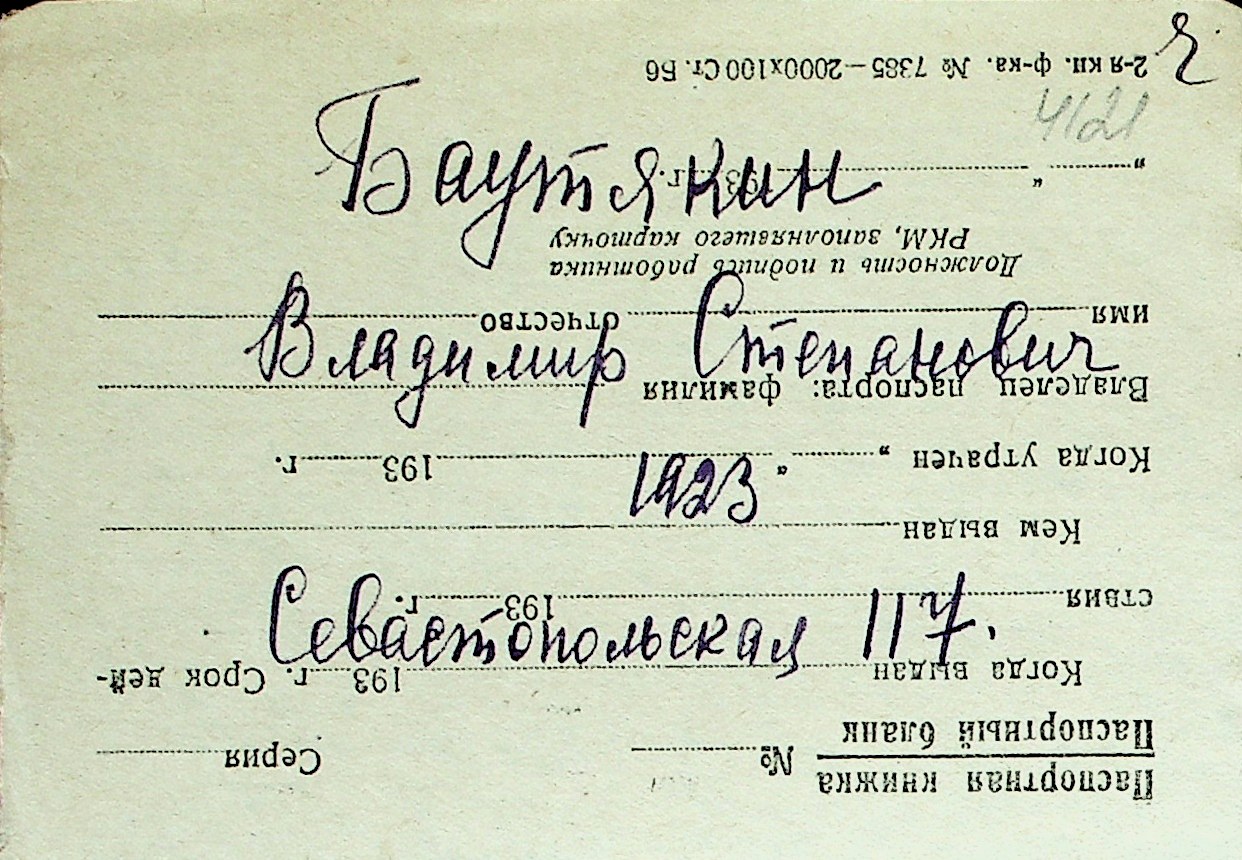 ч
4121
Баутякин
Владимир Степанович
1923
Севастопольская 117.
Паспортная книжка
Паспортный бланк
№ Серия
Когда выдан 193 г. Срок дей-
ствия 193 г.
Кем выдан
Когда утрачен „ “ 193 г.
Владелец паспорта: фамилия
имя отчество
Должность и подпись работника
РКМ, заполнявшего карточку
„ “ 193 г.
2-я кн. ф-ка. № 7385—2000х100 Ст. Б6